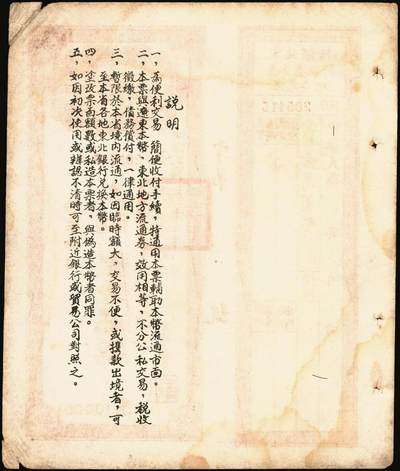 說明
一，為便利交易，簡便收付手續，特通用本票輔助本幣流通市面。
二，本票與遼東本幣、東北地方流通券，效用相等，不分公私交易，稅收
徵繳，債務償付，一律通用。
三，暫限於本省境內流通，如因臨時額大，交易不便，或携款出境者，可
至本省各地東北銀行兌換本幣。
四，塗改票面額數或私造本票者，與偽造本幣者同罪。
五，如因初次使用或辨認不清時可至附近銀行或貿易公司對照之。